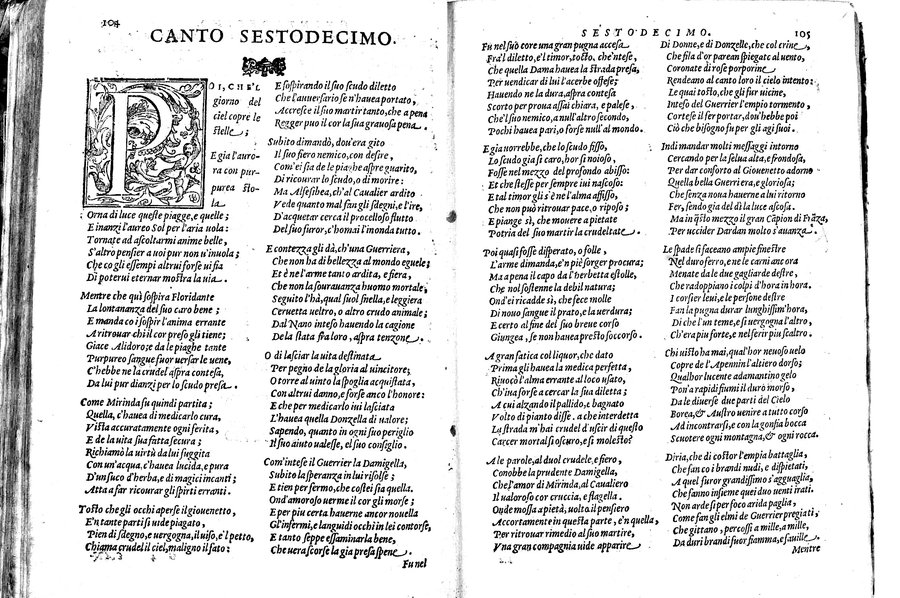 104
CANTO SESTODECIMO.
POICHE'L
giorno del
ciel copre le
stelle;
E gia l'auro-
ra con pur-
purea sto-
la
Orna di luce queste piagge, e quelle;
E inanzi l'aureo Sol per l'aria uola:
Tornate ad ascoltarmi anime belle,
S'altro pensier a uoi pur non u'inuola;
Che co gli essempi altrui forse ui fia
Di poterui eternar mostra la uia.
Mentre che quì sospira Floridante
La lontananza del suo caro bene;
E manda co i sospir l'anima errante
A ritrouar chi il cor preso gli tiene;
Giace Alidoro; e da le piaghe tante
Purpureo sangue fuor uersar le uene,
C'hebbe ne la crudel aspra contesa,
Da lui pur dianzi per lo scudo presa.
Come Mirinda su quindi partita;
Quella, c'hauea di medicarlo cura,
Vista accuratamente ogni ferita,
E de la uita sua fatta secura;
Richiamò la uirtù da lui fuggita
Con un'acqua, c'hauea lucida, e pura
D'un succo d'herba, e di magici incanti;
Atta a far ricourar gli spirti erranti.
Tosto che gli occhi aperse il giouenetto,
E'n tante parti si uide piagato,
Pien di sdegno, e uergogna, il uiso, e'l petto,
Chiama crudel il ciel, maligno il fato:
E sospirando il suo scudo diletto
Che l'auuersario se n'hauea portato,
Accresce il suo martir tanto, che a pena
Regger puo il cor la sua grauosa pena.
Subito dimandò, dou'era gito
Il suo fiero nemico, con desire,
Com'ei sia de le piaghe aspre guarito,
Di ricourar lo scudo, o di morire:
Ma Alfesibea, ch'al Caualier ardito
Vede quanto mal fan gli sdegni, e l'ire,
D'acquetar cerca il procelloso flutto
Del suo furor, c'homai l'inonda tutto.
E contezza gli dà, ch'una Guerriera,
Che non ha di bellezza al mondo eguale;
Et è ne l'arme tanto ardita, e fiera,
Che non la sourauanza huomo mortale;
Seguito l'hà, qual suol snella, e leggiera
Ceruetta ueltro, o altro crudo animale;
Dal Nano inteso hauendo la cagione
De la stata fra loro, aspra tenzone.
O di lasciar la uita destinata
Per pegno de la gloria al uincitore;
O torre al uinto la spoglia acquistata,
Con altrui danno, e forse anco l'honore:
E che per medicarlo iui lasciata
L'hauea quella Donzella di ualore;
Sapendo, quanto in ogni suo periglio
Il suo aiuto ualesse, e'l suo consiglio.
Com'intese il Guerrier la Damigella,
Subito la speranza in lui risolse;
E tien per fermo, che costei sia quella.
Ond'amoroso uerme il cor gli morse;
E per piu certa hauerne ancor nouella
Gl'infermi, e languidi occhi in lei contorse,
E tanto seppe essaminarla bene,
Che uera scorse la gia presa spene.
Fu nel
SESTODECIMO.
105
Fu nel suo core una gran pugna accesa
Fra'l diletto, e'l timor, tosto, che'ntese,
Che quella Dama hauea la strada presa,
Per uendicar di lui l'acerbe offese;
Hauendo ne la dura, aspra contesa
Scorto per proua assai chiara, e palese,
Che'l suo nemico, a null'altro secondo,
Pochi hauea pari, o forse null'al mondo.
E gia uorrebbe, che lo scudo fisso,
Lo scudo gia sì caro, hor sì noioso,
Fosse nel mezzo del profondo abisso:
Et che stesse per sempre iui nascoso:
E tal timor gli s'è ne l'alma affisso,
Che non può ritrouar pace, o riposo;
E piange sì, che mouere a pietate
Potria del suo martir la crudeltate.
Poi quasi fosse disperato, o folle,
L'arme dimanda, e'n piè sorger procura;
Ma apena il capo da l'herbetta estolle,
Che nol sostenne la debil natura;
Ond'ei ricadde sì, che fece molle
Di nouo sangue il prato, e la uerdura;
E certo al fine del suo breue corso
Giungea, se non hauea presto soccorso.
A gran fatica col liquor, che dato
Prima gli hauea la medica perfetta,
Riuocò l'alma errante al loco usato,
Ch'iua forse a cercar la sua diletta;
A cui alzando il pallido, e bagnato
Volto di pianto disse. a che interdetta
La strada m'hai crudel d'uscir di questo
Carcer mortal sì oscuro, e sì molesto?
A le parole, al duol crudele, e fiero,
Conobbe la prudente Damigella,
Che l'amor di Mirinda, al Caualiero
Il ualoroso cor cruccia, e flagella.
Onde mossa a pietà, uolto il pensiero
Accortamente in questa parte, e'n quella,
Per ritrouar rimedio al suo martire,
Vna gran compagnia uide apparire
Di Donne, e di Donzelle, che col crine,
Che fila d'or parean spiegate al uento,
Coronate di rose porporine
Rendeano al canto loro il cielo intento:
Le quai tosto, che gli fur uicine,
Inteso del Guerrier l'empio tormento,
Cortese il ser portar, dou'hebbe poi
Ciò che bisogno fu per gli agi suoi.
Indi mandar molti messaggi intorno
Cercando per la selua alta, e frondosa,
Per dar conforto al Giouenetto adorno
Quella bella Guerriera, e gloriosa;
Che senza noua hauerne a lui ritorno
Fer, sendo gia del dì la luce ascosa.
Ma in q̃sto mezzo il gran Cãpion di Frãza,
Per uccider Dardan molto s'auanza.
Le spade si faceano ampie finestre
Nel duro ferro, e ne le carni ancora
Menate da le due gagliarde destre,
Che radoppiano i colpi d'hora in hora.
I corsier leui, e le persone destre
Fan la pugna durar lunghissim'hora,
Di che l'un teme, e si uergogna l'altro,
Ch'era piu forte, e nel ferir piu scaltro.
Chi uisto ha mai, qual'hor neuoso uelo
Copre de l'Apennin l'altiero dorso;
Qual hor lucente adamantino gelo
Pon'a rapidi fiumi il duro morso,
Da le diuerse due parti del Cielo
Borea, & Austro uenire a tutto corso
Ad incontrarsi, e con la gonfia bocca
Scuotere ogni montagna, & ogni rocca.
Diria, che di costor l'empia battaglia,
Che fan co i brandi nudi, e dispietati,
A quel furor grandissimo s'agguaglia,
Che fanno insieme quei duo uenti irati.
Non arde sì per foco arida paglia,
Come fan gli elmi de Guerrier pregiati,
Che gittano, percossi a mille, a mille,
Da duri brandi fuor fiamma, e fauille.
Mentre